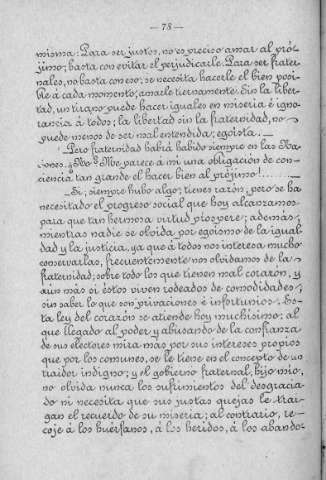 — 78 —
misma: Para ser justos, no es preciso amar al pró-
jimo; basta con evitar el perjudicarle. Para ser frater-
nales, no basta con eso; se necesita hacerle el bien posi-
ble á cada momento; amarle tiernamente. Sin la liber-
tad, un tirano puede hacer iguales en miseria é igno-
rancia á todos; la libertad sin la fraternidad, no
puede menos de ser mal entendida; egoista.—
¿Pero fraternidad habrá habido siempre en las Na-
ciones..¿No? Me parece á mi una obligación de con-
ciencia tan grande el hacer bien al prójimo!......—
—Si; siempre hubo algo; tienes razón; pero se ha
necesitado el progreso social que hoy alcanzamos
para que tan hermosa virtud prospere; además,
mientras nadie se olvida por egoismo de la igual-
dad y la justicia, ya que á todos nos interesa mucho
conservarlas, frecuentemente nos olvidamos de la
fraternidad; sobre todo los que tienen mal corazón, y
aún más si éstos viven rodeados de comodidades;
sin saber lo que son privaciones é infortunios. Es-
ta ley del corazón se atiende hoy muchísimo; al
que llegado al poder y abusando de la confianza
de sus electores mira más por sus intereses propios
que por los comunes, se le tiene en el concepto de un
traidor indigno; y el gobierno fraternal, hijo mio,
no olvida nunca los sufrimientos del desgracia-
do ni necesita que sus justas quejas le trai-
gan el recuerdo de su miseria; al contrario, re-
coje á los huérfanos, á los heridos, á los abando-